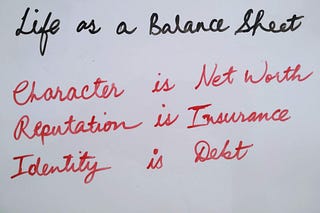 Life as a Balance Sheet
Character is Net Worth
Reputation is Insurance
Identity is Debt